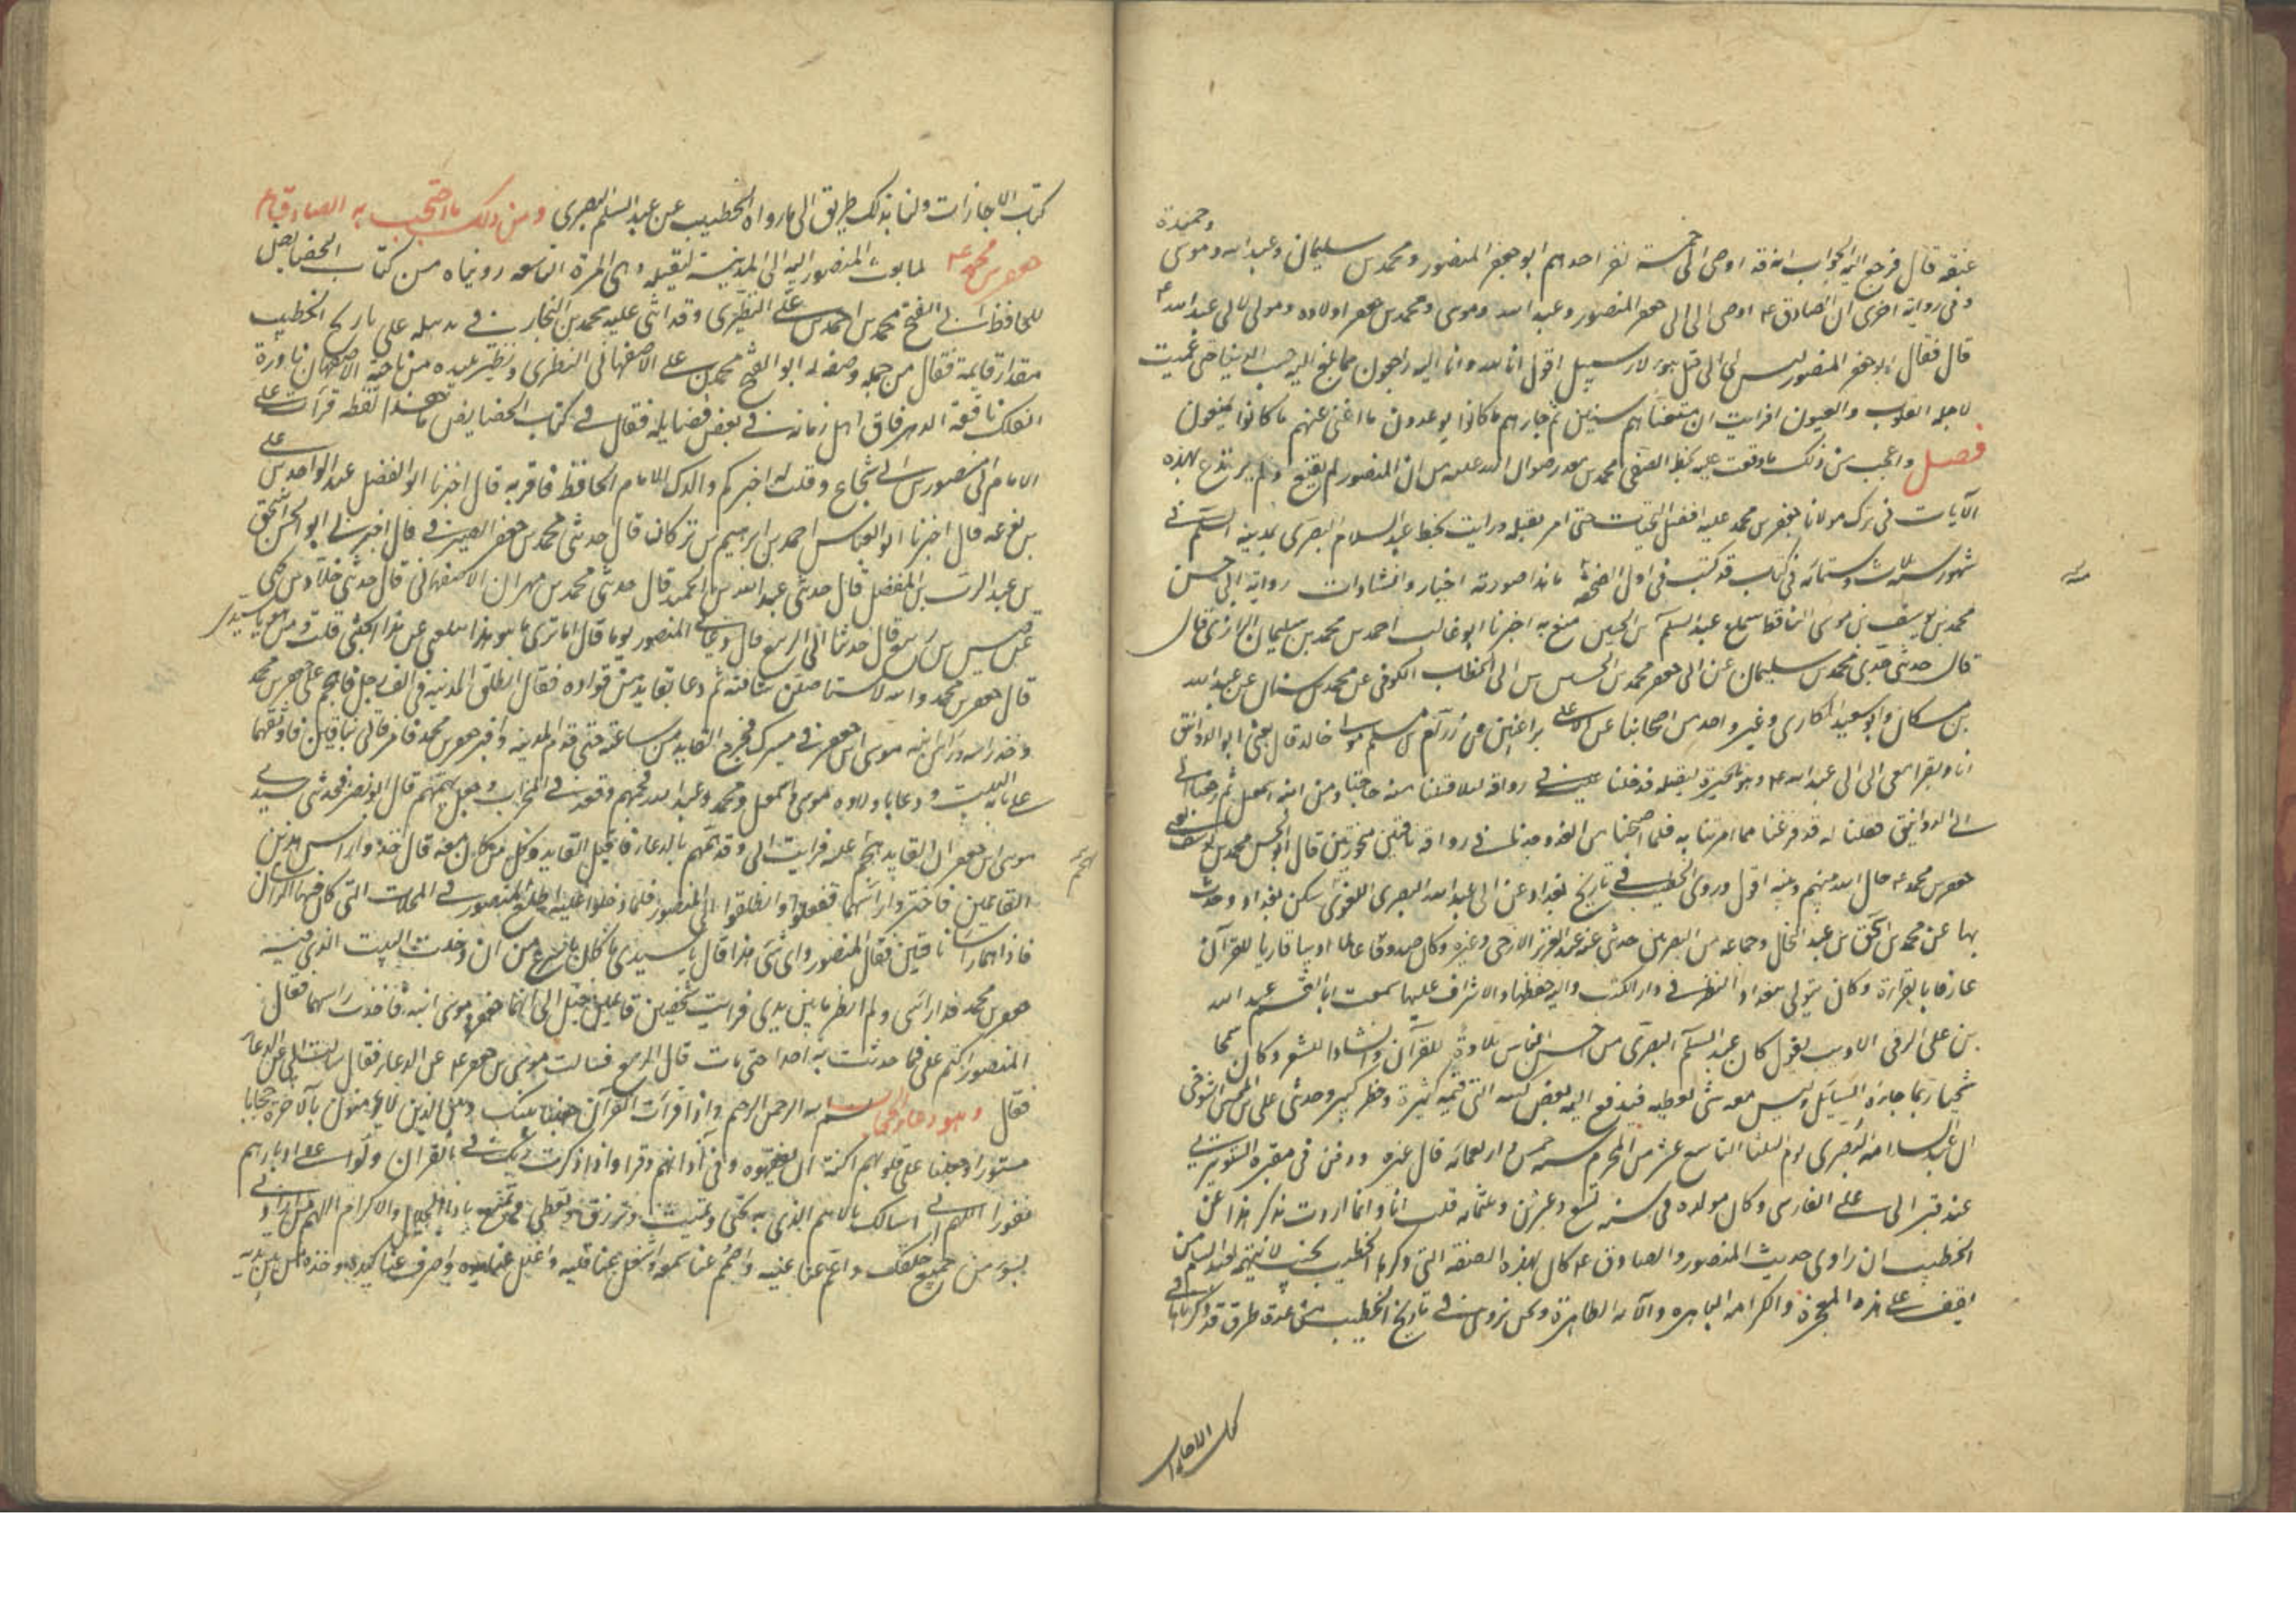 وحميدة
عنقه قال فرجع اليه الجواب انه قد اوصى الى خمسة نفر احدهم ابو جعفر المنصور ومحمد بن سليمان وعبد الله وموسى
وفى رواية اخرى ان الصادق ع اوصى الى ابى جعفر المنصور وعبد الله وموسى ومحمد بن جعفر اولاده ومولى لابى عبد الله ع
قال فقال ابو جعفر المنصور ليس الى قتل هؤلاء سبيل اقول انا لله وانا اليه راجعون مما بلغ اليه حب الدنيا حتى عميت
لاجله القلوب والعيون افرايت ان متعناهم سنين ثم جاءهم ما كانوا يوعدون ما اغنى عنهم ما كانوا يمتعون
فصل واعجب من ذلك ما وقفت عليه بخط الصفى محمد بن معد رضوان الله عليه من ان المنصور لم يقنع ولم يرتدع بهذه
الآيات فى ترك مولانا جعفر بن محمد عليه افضل التحيات حتى امر بقتله ورايت بخط عبد السلام البصرى بمدينة السلم فى
شهور سنة ثلاث وستمائه فى كتاب قد كتب فى اول الصفحة ما هذا صورته اخبار وانشادات رواية ابى الحسن
محمد بن يوسف بن موسى الناقط سماع عبد السلم بن الحسين منع به اخبرنا ابو غالب احمد بن محمد بن سليمان الرازى قال
قال حدثنى جدى محمد بن سليمان عن ابى جعفر محمد بن الحسين بن ابى الخطاب الكوفى عن محمد بن سنان عن عبد الله
بن مسكان وابو سعيد المكارى وغير واحد من اصحابنا عن عبد الاعلى بن اعين عن رزام بن مسلم مولى خالد قال بعثنى ابو الدوانيق
انا ونفرا معى الى ابى عبد الله ع وهو بالحيرة ليقتله فدخلنا عليه فى رواقه ليلا فنلنا منه حاجتنا ومن ابنه اسمعيل ثم رجعنا
الى ابى الدوانيق فقلنا له قد فرغنا مما امرتنا به فلما اصبحنا من الغد وجدنا فى رواقه ناقتين منحورتين قال ابو الحسن محمد بن يوسف
جعفر بن محمد ع حال الله بينهم وبينه اقول وروى الخطيب فى تاريخ بغداد عن ابى عبد الله البصرى اللغوى سكن بغداد وحدث
بها عن محمد بن اسحق بن عباد الخال وجماعة من البصريين حدثنى عنه عبد العزيز الازجى وغيره وكان صدوقا عالما اديبا قاريا للقرآن
عارفا بالقراءة وكان يتولى ببغداد النظر فى دار الكتب واليه حفظها والاشراف عليها سمعت ابا القسم عبيد الله
بن على الرقى الاديب يقول كان عبد السلم البصرى من احسن الناس تلاوة للقرآن وانشادا للشعر وكان سمحا
سخيا ربما جاءه السائل وليس معه شئ يعطيه فيدفع اليه بعض كتبه التى قيمته كثيرة وخطر كبير وحدثنى على بن المحسن التنوخى
ان عبد السلام البصرى يوم الثلثا التاسع عشر من المحرم سنة خمس واربعمائه قال غيره ودفن فى مقبرة الشونيزى
عند قبر ابى على الفارسى وكان مولده فى سنة تسع وعشرين وثلثمائه قلت انا وانما اردت بذكر هذا عن
الخطيب ان راوى حديث المنصور والصادق ع كان بهذه الصفة التى ذكرها الخطيب بحيث لا يتهم عبد السلام من
يقف على هذه المعجزة والكرامه الباهره والآيه الظاهرة ونحن نروى تاريخ الخطيب من عدة طرق قد ذكرناها فى
كتاب الاجازات
كتاب الاجازات ولنا بذلك طريق الى ما رواه الخطيب عن عبد السلم البصرى ومن ذلك ما احتجب به الصادق
جعفر بن محمد ع لما بعث المنصور اليه الى المدينة ليقتله وهى المرة التاسعه رويناه من كتاب الخصايص
للحافظ ابى الفتح محمد بن احمد بن على النطنزى وقد اثنى عليه محمد بن النجار فى تذييله على تاريخ الخطيب
مقدار قايمة فقال من جمله وصفه له ابو الفتح محمد بن على الاصفهانى النطنزى ونطنز بليده من ناحية الاصفهان نادرة
الفلك نافعة الدهر فاق اهل زمانه فى بعض فضايله فقال فى كتاب الخصايص ما هذا لفظه قرأت على
الامام ابى منصور بن ابى شجاع وقلت له اخبركم والدك الامام الحافظ فاقر به قال اخبرنا ابو الفضل عبد الواحد بن على
بن نوعه قال اخبرنا ابو العباس احمد بن ابراهيم بن تركان قال حدثنى محمد بن جعفر الصيرفى قال اخبرنى ابو الحسن اسحق
بن عبد الرب بن المفضل قال حدثنى عبد الله بن عبد الحميد قال حدثنى محمد بن مهران الاصفهانى قال حدثنى خلاد بن يحيى
عن قيس بن ربيع قال حدثنا ابى الربيع قال دعانى المنصور يوما قال اما ترى ما هو هذا يبلغنى عن هذا الحبشى قلت ومن هو يا سيدى
قال جعفر بن محمد والله لاستاصلن شافته ثم دعا بقايد من قواده فقال انطلق الى المدينة فى الف رجل فاهجم على جعفر بن محمد
وخذ راسه وراس ابنه موسى بن جعفر فى مسيرك فخرج القايد من ساعته حتى قدم المدينه واخبر جعفر بن محمد فامر فاتى بناقتين فاوثقهما
على باب البيت ودعا باولاده موسى واسمعيل ومحمد وعبد الله فجمعهم وقعد فى المحراب وجعل يهمهم قال ابو نصر فحدثنى سيدى
موسى بن جعفر ان القايد هجم عليه فرايت ابى وقد همهم بالدعا فاقبل القايد وكل من كان معه قال خذوا راس هذين
القايمين فاجتزوا راسهما ففعلوا وانطلقوا الى المنصور فلما دخلوا عليه اطلع المنصور فى المخلاة التى كان فيها الراسان
فاذا هما راسا ناقتين فقال المنصور واى شئ هذا قال يا سيدى ما كان باسرع من ان دخلت البيت الذى فيه
جعفر بن محمد فدار راسى ولم انظر ما بين يدى فرايت شخصين قايمين خيل الى انهما جعفر وموسى ابنه فاخذت راسهما فقال
المنصور اكتم على فما حدثت به احدا حتى مات قال الربيع فسالت موسى بن جعفر ع عن الدعا فقال سالت ابى عن الدعا
فقال وهو دعا الحجاب بسم الله الرحمن الرحيم واذا قرأت القرآن جعلنا بينك وبين الذين لا يؤمنون بالآخرة حجابا
مستورا وجعلنا على قلوبهم اكنة ان يفقهوه وفى آذانهم وقرا واذا ذكرت ربك فى القرآن ولوا على ادبارهم
نفورا اللهم انى اسالك بالاسم الذى به تحيى وتميت وترزق وتعطى وتمنع يا ذا الجلال والاكرام اللهم من ارادنى
بسوء من جميع خلقك واعم عنا عينه واصمم عنا سمعه واشغل عنا قلبه واغلل عنا يده واصرف عنا كيده وخذه من بين يديه